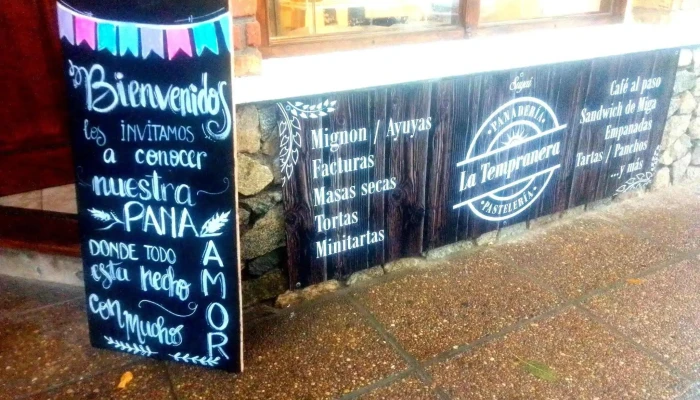 Bienvenidos
los INVITAMOS
a conocer
nuestra
PANA
DONDE TODO
esta hecho
con muchos
AMOR
Mignon / Ayuyas
Facturas
Masas secas
Tortas
Minitartas
PANADERÍA
La Tempranera
PASTELERÍA
Café al paso
Sandwich de Miga
Empanadas
Tartas / Panchos
...y más